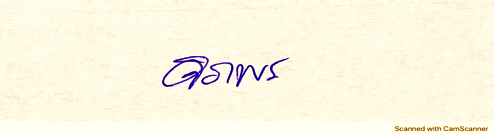 ศิภาพร
Scanned with CamScanner